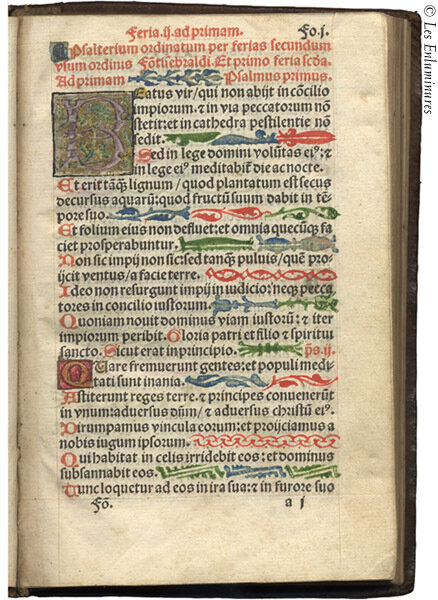 Feria.ij.ad primam. Fo.j.
Psalterium ordinatum per ferias secundum
vsum ordinis Fōtisebraldi. Et primo feria scďa.
Ad primam Psalmus primus.
BEatus vir/qui non abijt in cōcilio
impiorum: & in via peccatorum nō
stetit: et in cathedra pestilentie nō
sedit.
Sed in lege domini volūtas ei⁹: &
in lege ei⁹ meditabiť die ac nocte.
Et erit tāq̄ lignum/quod plantatum est secus
decursus aquarū: quod fructū suum dabit in tē-
pore suo.
Et folium eius non defluet: et omnia quecūq̄ fa
ciet prosperabuntur.
Non sic impij non sic: sed tanq̄ puluis/quē pro-
ijcit ventus/a facie terre.
Ideo non resurgunt impij in iudicio: neq̄ pecca
tores in concilio iustorum.
Quoniam nouit dominus viam iustorū: & iter
impiorum peribit. Gloria patri et filio & spiritui
sancto. Sicut erat in principio. p̄s.ij.
QUare fremuerunt gentes: et populi medi-
tati sunt inania.
Astiterunt reges terre. & principes conuenerūt
in vnum aduersus dñm/& aduersus christū ei⁹.
Dirumpamus vincula eorum: et proijciamus a
nobis iugum ipsorum.
Qui habitat in celis irridebit eos: et dominus
subsannabit eos.
Tunc loquetur ad eos in ira sua: & in furore suo
Fō. a j
© Les Enluminures